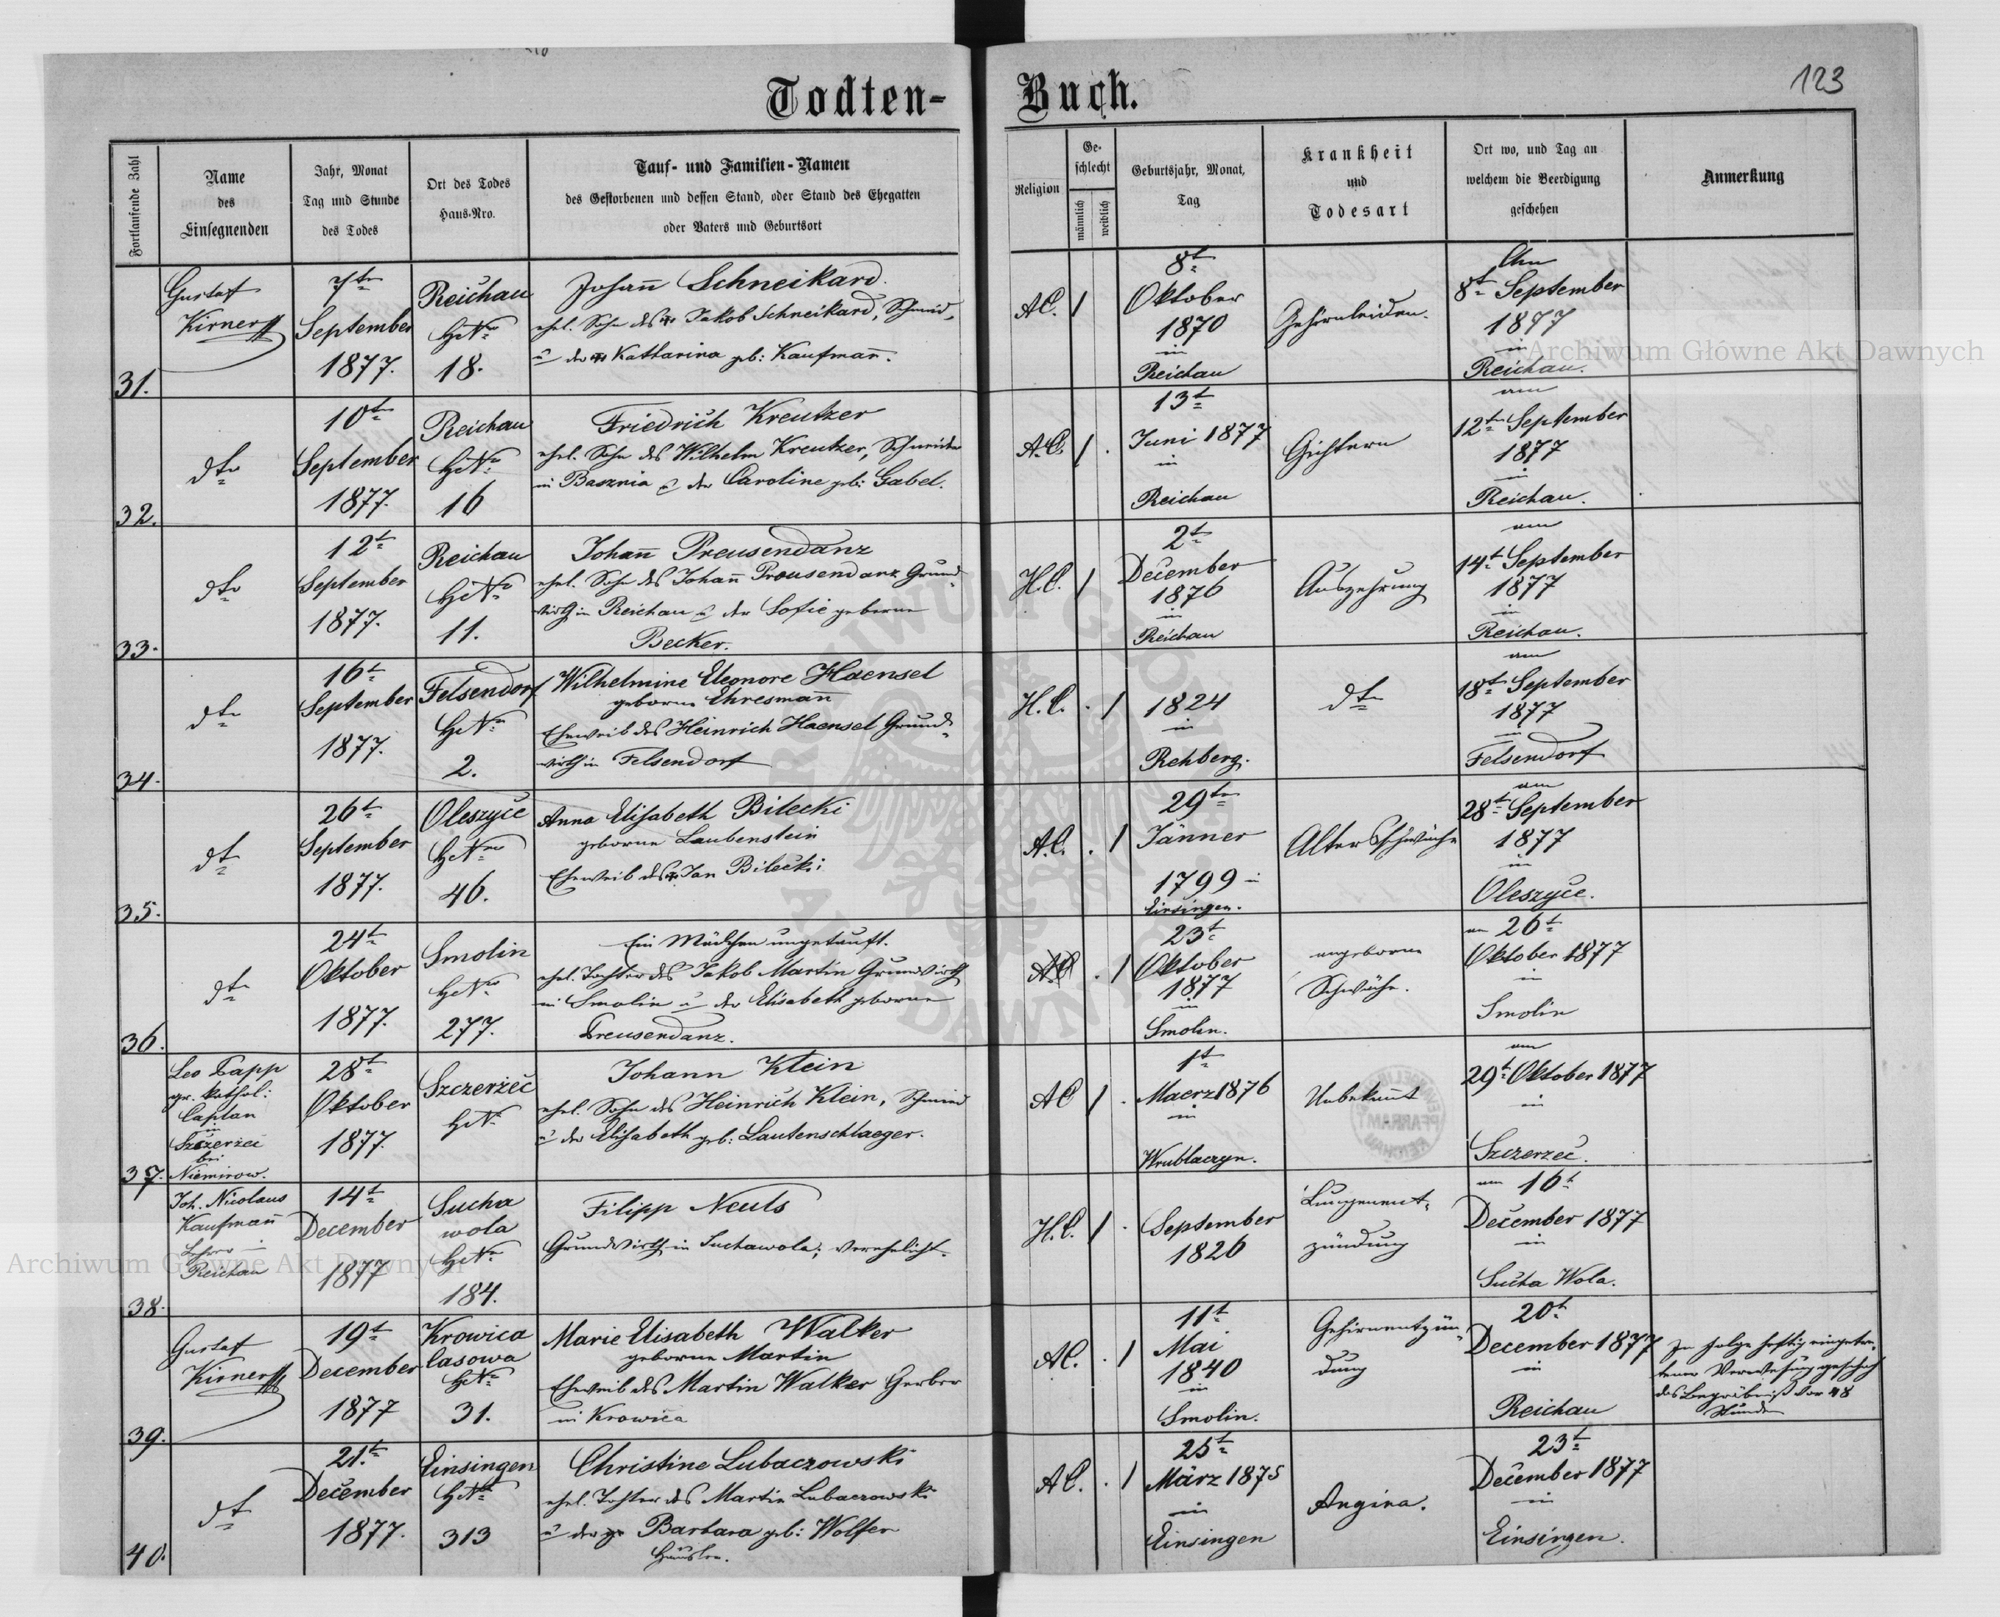 Todten-Buch.
123
Fortlaufende Zahl
Name
des
Einsegnenden
Jahr, Monat
Tag und Stunde
des Todes
Ort des Todes
Haus-Nro.
Tauf- und Familien-Namen
des Gestorbenen und dessen Stand, oder Stand des Ehegatten
oder Vaters und Geburtsort
Religion
Ge-
schlecht
männlich
weiblich
Geburtsjahr, Monat,
Tag
Krankheit
und
Todesart
Ort wo, und Tag an
welchem die Beerdigung
geschehen
Anmerkung
31.
Gustaf
Kirner
7te
September
1877.
Reichau
HNo
18.
Johann Schneikard.
ehel. Sohn des Jakob Schneikard, Schmid,
u der Katharina geb: Kaufmann.
A.C.
1
8t
Oktober
1870
in
Reichau
Gehirnleiden.
Am
8t September
1877
in
Reichau.
32.
dto
10te
September
1877.
Reichau
HNo
16
Friedrich Kreutzer
ehel. Sohn des Wilhelm Kreutzer, Schneider
in Basznia u der Caroline geb: Gabel.
A.C.
1 .
13t
Juni 1877
in
Reichau
Gichtern
am
12te September
1877
in
Reichau.
33.
dto
12t
September
1877.
Reichau
HNo
11.
Johann Preusendanz
ehel. Sohn des Johann Preusendanz Grund-
wirth in Reichau u der Sofie geborne
Becker.
H.C.
1
2t
December
1876
in
Reichau
Auszehrung
am
14t September
1877
in
Reichau.
34.
dto
16t
September
1877.
Felsendorf
HNo
2.
Wilhelmine Eleonore Haensel
geborne Ehresmann
Eheweib des Heinrich Haensel Grund-
wirth in Felsendorf
H.C.
. 1
1824
in
Rehberg.
dto
am
18t September
1877
in
Felsendorf
35.
dt
26t
September
1877.
Oleszyce
HNo
46.
Anna Elisabeth Bilecki
geborne Laubenstein
Eheweib des Jan Bilecki
A.C.
. 1
29te
Jänner
1799 in
Einsingen.
Altersschwäche
am
28t September
1877
in
Oleszyce.
36.
dto
24t
Oktober
1877.
Smolin
HNo
277.
Ein Mädchen ungetauft.
ehel. Tochter des Jakob Martin Grundwirth
in Smolin u der Elisabeth geborne
Preusendanz.
AC
. 1
23t
Oktober
1877
in
Smolin.
angeborne
Schwäche.
am 26t
Oktober 1877
in
Smolin
37.
Leo Papp
gr. kathol:
Caplan
in
Szczerzec
bei
Niemirow.
28t
Oktober
1877.
Szczerzec
HN
Johann Klein
ehel. Sohn des Heinrich Klein, Schmied
u der Elisabeth geb: Lautenschlaeger.
AC
1 .
1t
Maerz 1876
in
Wrublaczyn.
Unbekannt
am
29t Oktober 1877
in
Szczerzec.
38.
Joh. Nicolaus
Kaufmann
Lehrer in
Reichau
14t
December
1877
Sucha
wola
HNo
184.
Filipp Neuls
Grundwirth in Suchawola; verehelicht.
H.C.
1 .
September
1826
Lungenent-
zündung
am 16t
December 1877
in
Sucha Wola.
39.
Gustaf
Kirner
19t
December
1877
Krowica
lasowa
HNo
31.
Marie Elisabeth Walker
geborne Martin
Eheweib des Martin Walker Gerber
in Krowica
AC.
. 1
11t
Mai
1840
in
Smolin.
Gehirnentzün-
dung
20t
December 1877
in
Reichau
In folge heftig eingetre-
tener Verwesung geschah
das Begräbniß vor 48
Stunden
40.
dt
21t
December
1877.
Einsingen
HNo
313
Christine Lubaczowski
ehel. Tochter des Martin Lubaczowski
u der Barbara geb: Wolfer
Häusler.
AC.
. 1
25t
März 1875
in
Einsingen
Angina.
23t
December 1877
in
Einsingen.
Archiwum Główne Akt Dawnych
Archiwum Główne Akt Dawnych
ARCHIWUM GŁÓWNE AKT DAWNYCH